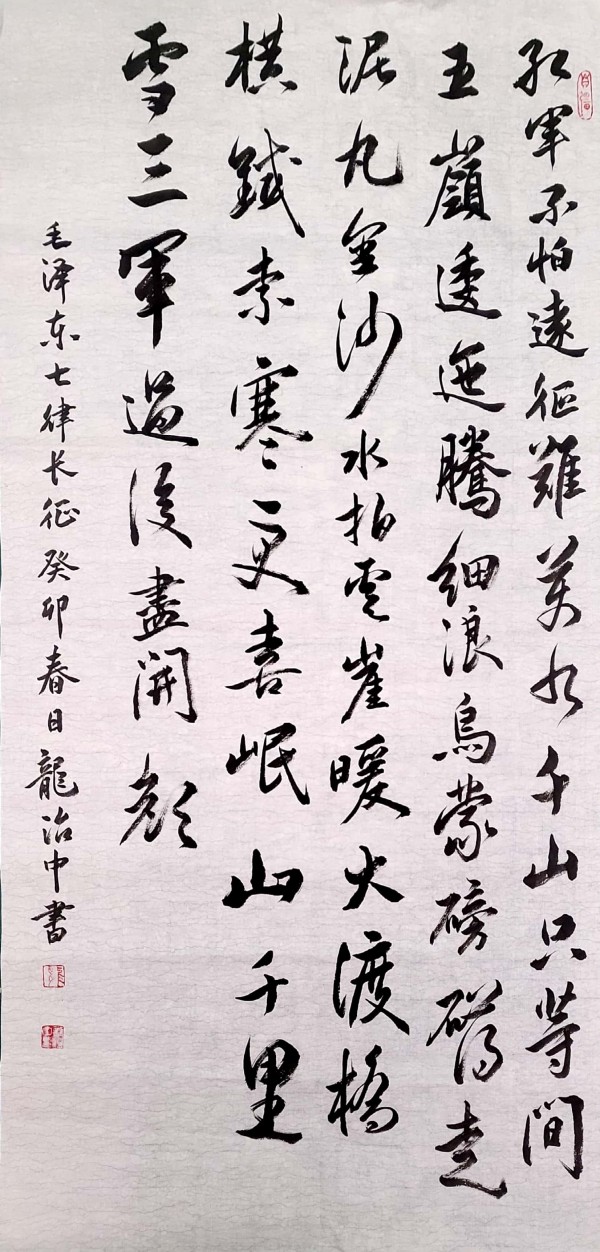 红军不怕遠征難萬水千山只等闲
五嶺逶迤腾细浪烏蒙磅礴走
泥丸金沙水拍雲崖暖大渡橋
横鐵索寒更喜岷山千里
雪三軍過後盡開颜
毛泽东七律长征癸卯春日龍治中書